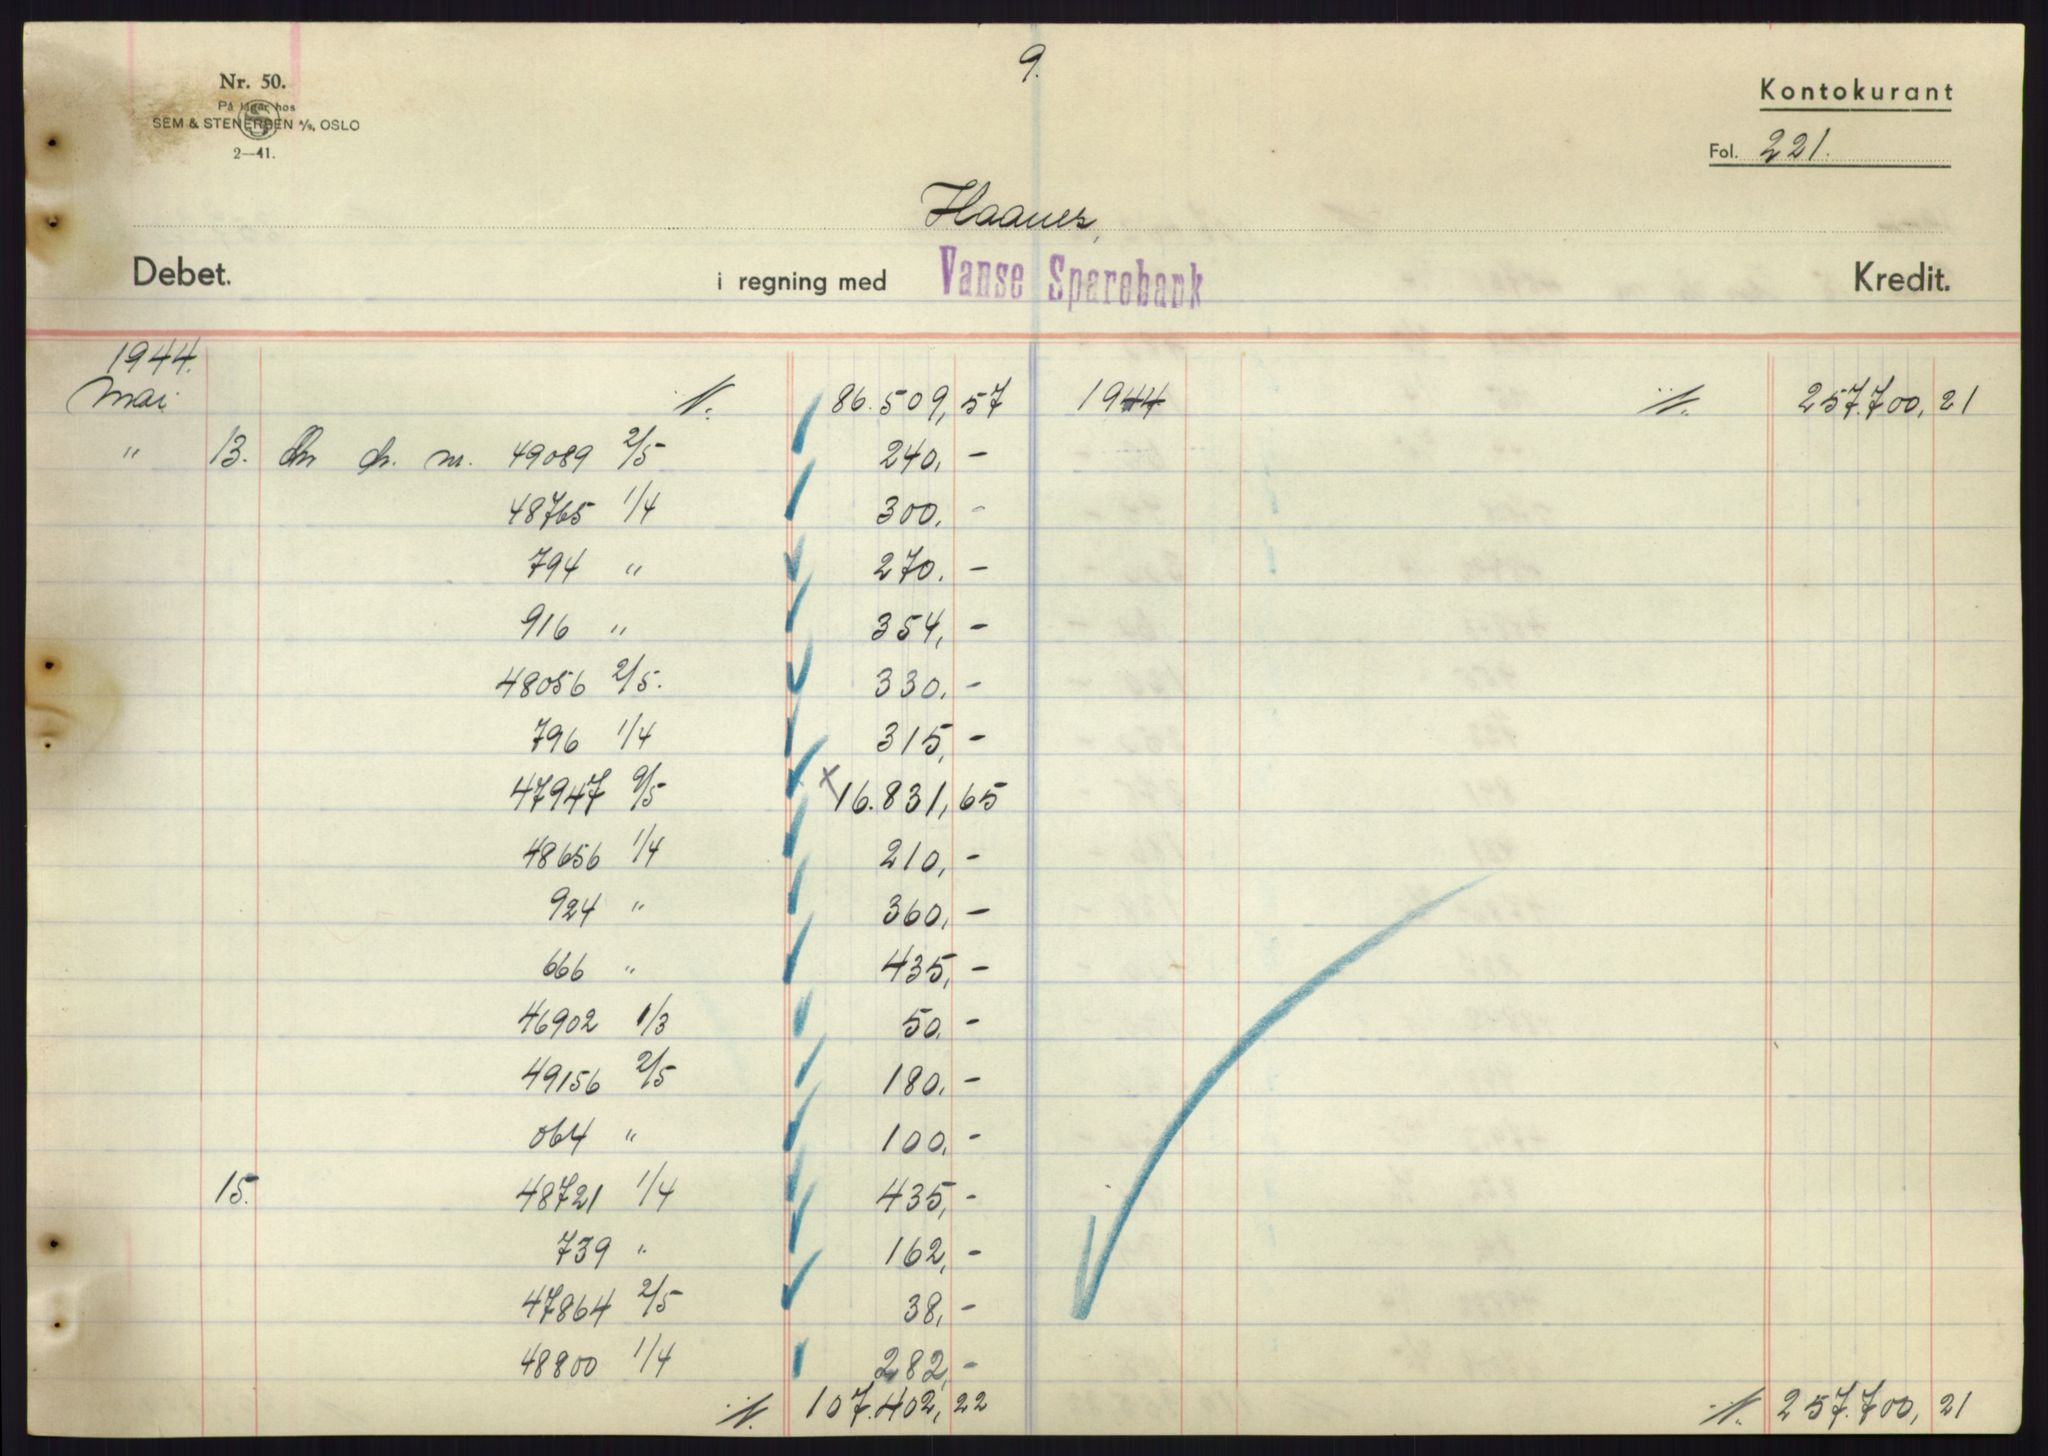 9.
Nr. 50.
På lager hos
SEM & STENERSEN A/S, OSLO
2—41.
Kontokurant
Fol. 221.
Haanes,
Debet. i regning med Vanse Sparebank Kredit.
1944.
Mai 86.509,57 1944 257.700,21
" 13. ch. nr. 49089 2/5 240,-
48765 1/4 300,-
794 " 270.-
916 " 354,-
48056 2/5. 330,-
796 1/4 315,-
47947 9/5 x 16.831,65
48656 1/4 210,-
924 " 360,-
666 " 435,-
46902 1/3 50,-
49156 2/5 180,-
064 " 100,-
15. 48721 1/4 435,-
739 " 162,-
47864 2/5 38,-
48800 1/4 282,-
107.402,22 257.700,21